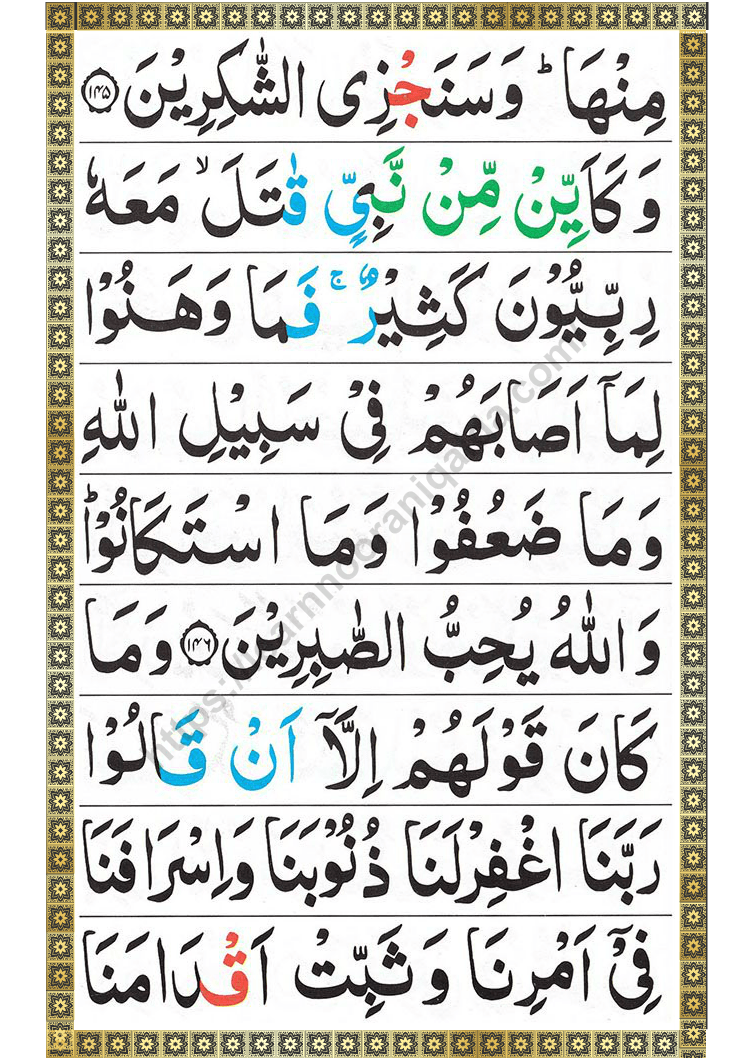 مِنْهَا ؕ وَسَنَجْزِى الشّٰكِرِيْنَ ۝۱۴۵
وَكَاَيِّنْ مِّنْ نَّبِىٍّ قٰتَلَ ۙ مَعَهٗ
رِبِّيُّوْنَ كَثِيْرٌ ۚ فَمَا وَهَنُوْا
لِمَاۤ اَصَابَهُمْ فِىْ سَبِيْلِ اللّٰهِ
وَمَا ضَعُفُوْا وَمَا اسْتَكَانُوْا ؕ
وَاللّٰهُ يُحِبُّ الصّٰبِرِيْنَ ۝۱۴۶ وَمَا
كَانَ قَوْلَهُمْ اِلَّاۤ اَنْ قَالُوْا
رَبَّنَا اغْفِرْلَنَا ذُنُوْبَنَا وَاِسْرَافَنَا
فِىْۤ اَمْرِنَا وَثَبِّتْ اَقْدَامَنَا
https://learnnooraniqaida.com/